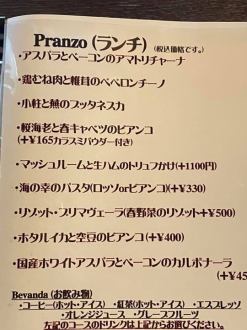 Pranzo (ランチ) (税込価格です。)
・アスパラとベーコンのアマトリチャーナ
・鶏むね肉と椎茸のペペロンチーノ
・小柱と蕪のプッタネスカ
・桜海老と春キャベツのビアンコ
(+￥165カラスミパウダー付き)
・マッシュルームと生ハムのトリュフかけ(+1100円)
・海の幸のパスタ(ロッソorビアンコ)(+￥330)
・リゾット・プリマヴェーラ(春野菜のリゾット+￥500)
・ホタルイカと空豆のビアンコ(+￥400)
・国産ホワイトアスパラとベーコンのカルボナーラ
(+￥45
Bevanda (お飲み物)
・コーヒー(ホット・アイス) ・紅茶(ホット・アイス) ・エスプレッソ
・オレンジジュース ・グレープフルーツ
左記のコースのドリンクは上記からお選びください。